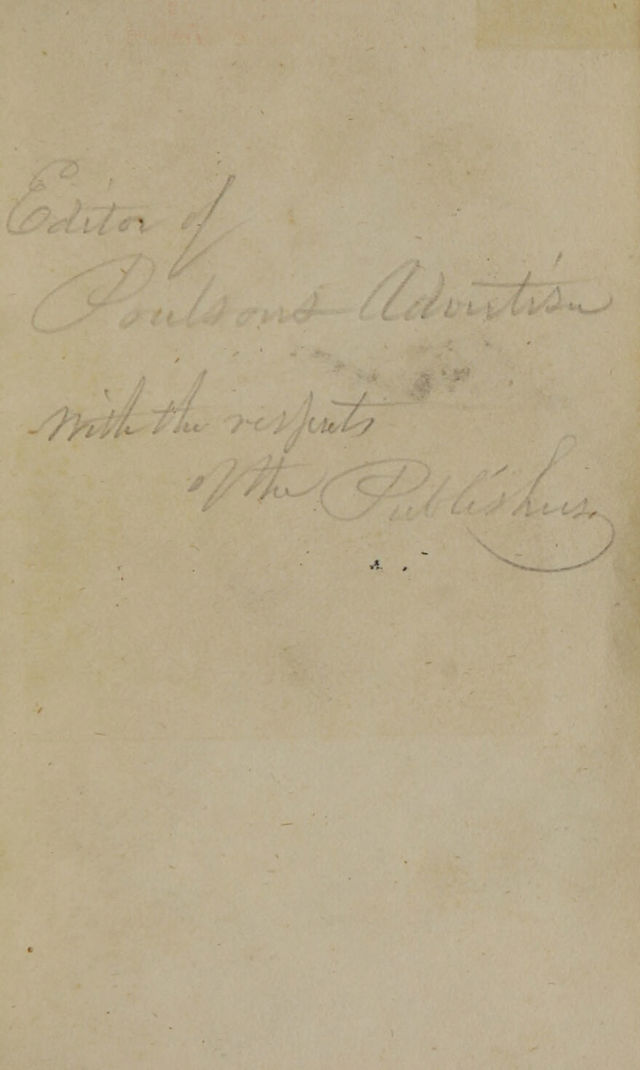 Editor of
Poulsons Advertiser
with the respects
of the Publishers